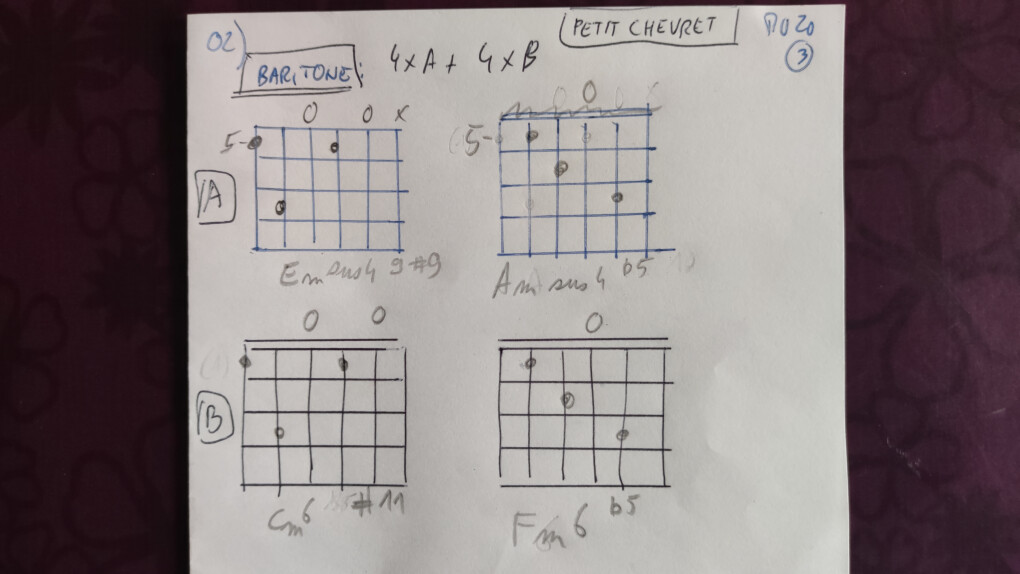 02) PETIT CHEVRET
3
BARITONE: 4xA + 4xB
O O x O
5- 5-
A
Em sus4 9 #9 Am sus4 b5
O O O
B
Cm6 #11 Fm6 b5